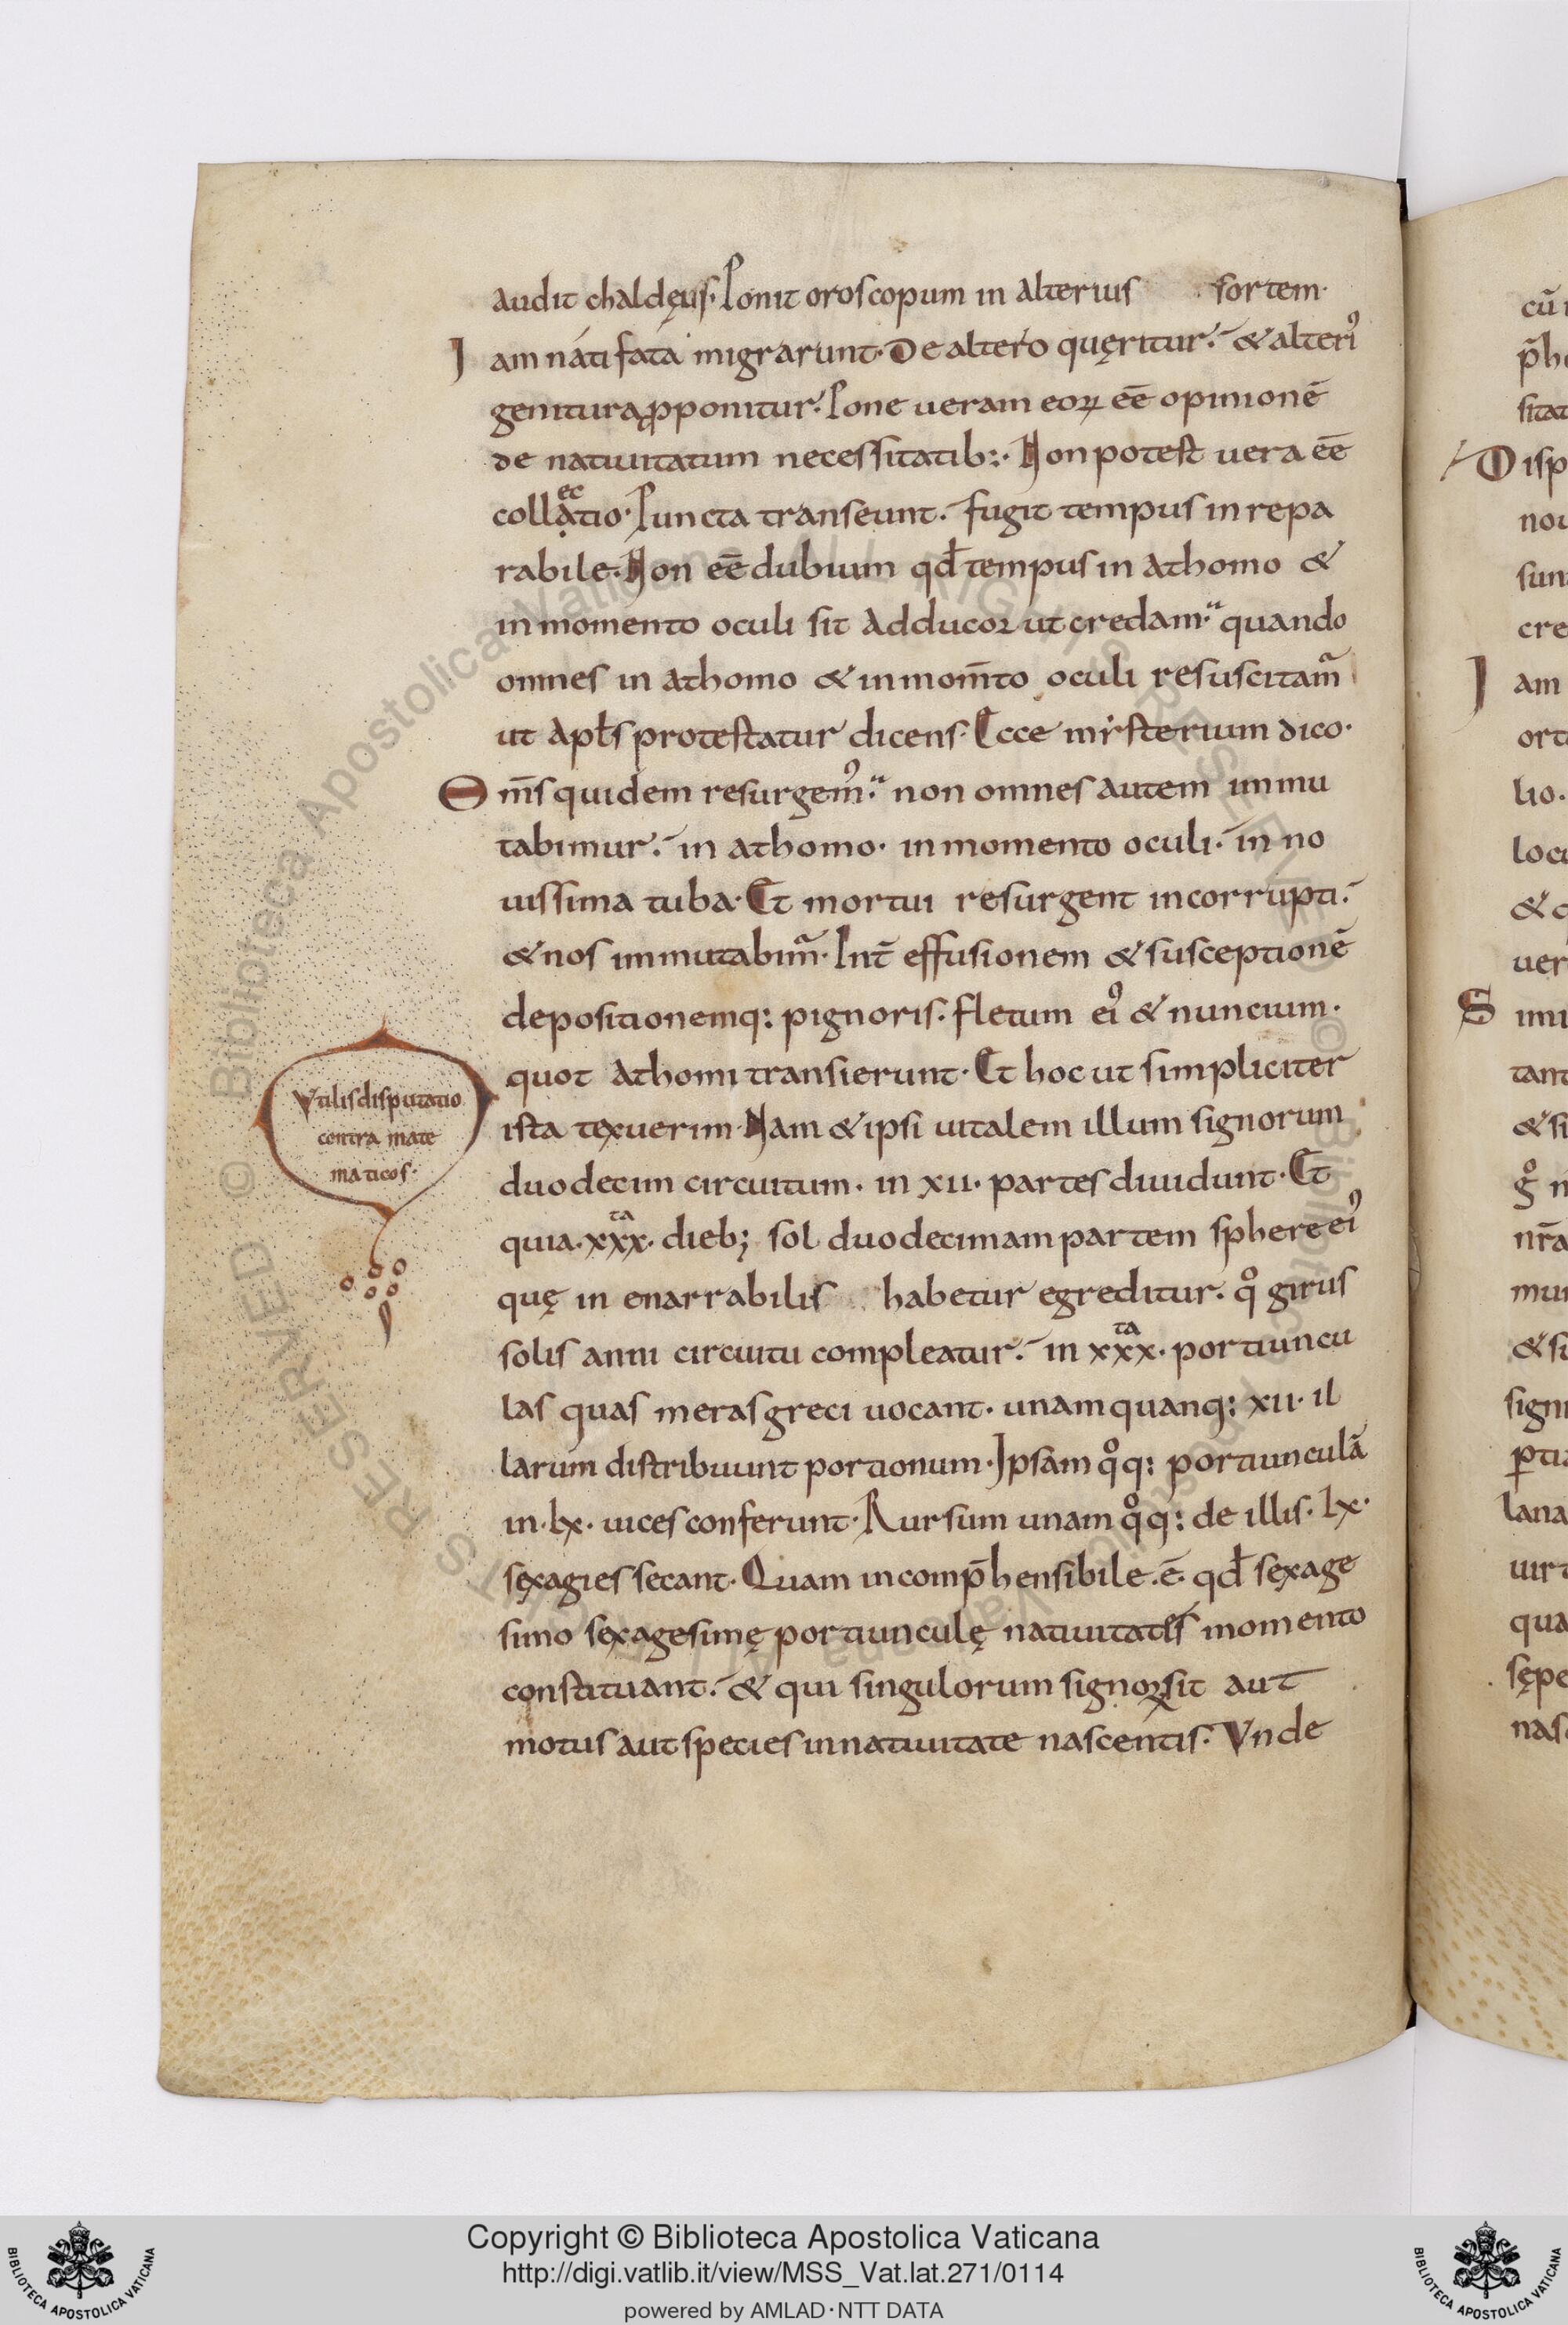 audit chaldęus. Ponit oroscopum in alterius sortem.
Iam nati fata migrarunt. De altero quęritur. & alteri᾿
genitura ꝓponitur. Pone ueram eoꝝ eē opinionē
de natiuitatum necessitatib:. Non potest uera eē
collạtio. Puncta transeunt. fugit tempus in repa
ec
rabile. Non eē dubium qđ tempus in athomo &
in momento oculi sit adducor ut credam. quando
omnes in athomo & in mom̄to oculi resuscitam̄
ut apłs protestatur dicens. Ecce mẏsterium dico.
Om̄s quidem resurgem᾿. non omnes autem immu
tabimur. in athomo. in momento oculi. in no
uissima tuba. Et mortui resurgent incorrupti.
& nos immutabim̄. Int̄ effusionem & susceptionē
depositionemq: pignoris. fletum ei᾿ & nuncium.
quot athomi transierunt. Et hoc ut simpliciter
ista texuerim. Nam & ipsi uitalem illum signorum
duodecim circuitum. in xii. partes diuidunt. Et
quia. xxx. dieb; sol duodecimam partem sphere ei᾿
ta
quę in enarrabilis habetur egreditur. qͦ girus
solis anni circuitu compleatur. in xxx. portiuncu
ta
las quas meras greci uocant. unam quanq: xii. il
larum distribuunt portionum. Ipsam qͦq: portiunculā
in. lx. uices conferunt. Rursum unam qͦq: de illis. lx.
sexagies secant. Quam incomp̄hensibile. ē. qđ sexage
simo sexagesimę portiunculę natiuitatis momento
constituant. & qui singulorum signoꝝ sit aut
motus aut species in natiuitate nascentis. Vnde
Vtilis disputatio
contra mate
maticos.
cū
p̄h
sitat
Disp
nou
sun
cre
Iam
orto
lio.
locu
& q
uer
Simi
tant
& si
gͦ n
nr̄a
mun
& si
signi
ꝑtia
lana
uirt
qua
sępe
nasc
© Biblioteca Apostolica Vaticana ALL RIGHTS RESERVED
© Biblioteca Apostolica Vaticana ALL RIGHTS RESERVED
Copyright © Biblioteca Apostolica Vaticana
http://digi.vatlib.it/view/MSS_Vat.lat.271/0114
powered by AMLAD·NTT DATA
BIBLIOTECA APOSTOLICA VATICANA
BIBLIOTECA APOSTOLICA VATICANA